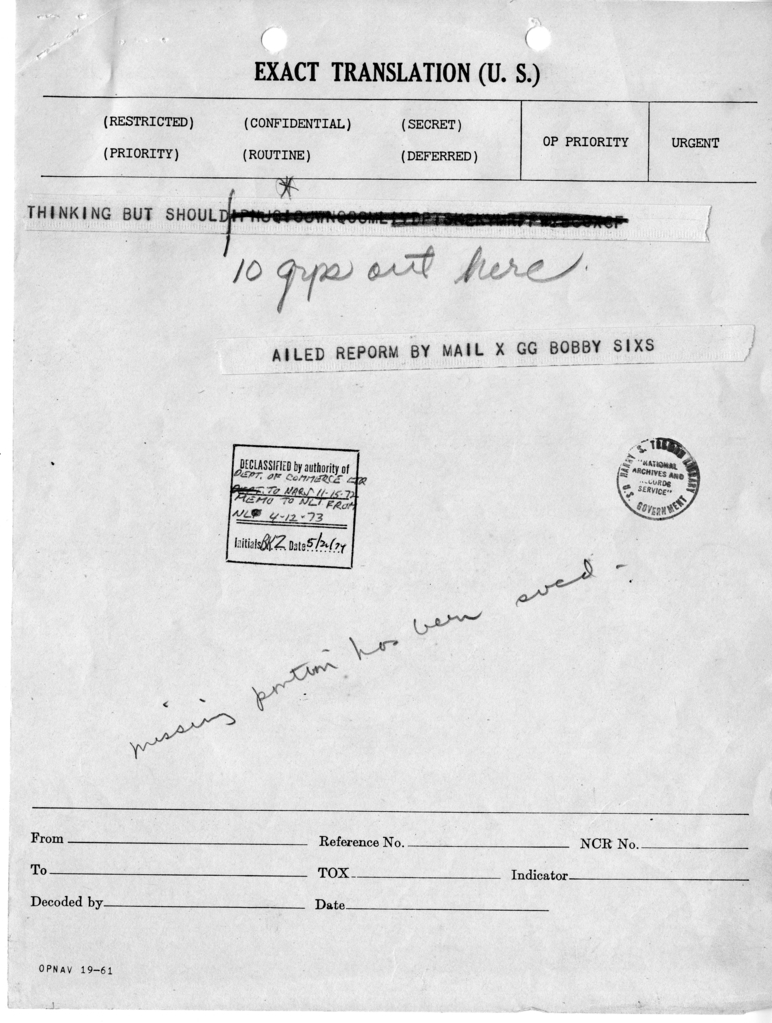 EXACT TRANSLATION (U. S.)
(RESTRICTED) (CONFIDENTIAL) (SECRET) OP PRIORITY URGENT
(PRIORITY) (ROUTINE) (DEFERRED)
*
THINKING BUT SHOULD
10 grps out here.
AILED REPORM BY MAIL X GG BOBBY SIXS
DECLASSIFIED by authority of
DEPT. OF COMMERCE
TO NARS 11-15-72
MEMO TO NLT FROM
4-12-73
Initials Date 5/24/74
HARRY S. TRUMAN LIBRARY
"NATIONAL
ARCHIVES AND
RECORDS
SERVICE"
U.S. GOVERNMENT
missing portion has been svcd -
From Reference No. NCR No.
To TOX Indicator
Decoded by Date
OPNAV 19-61